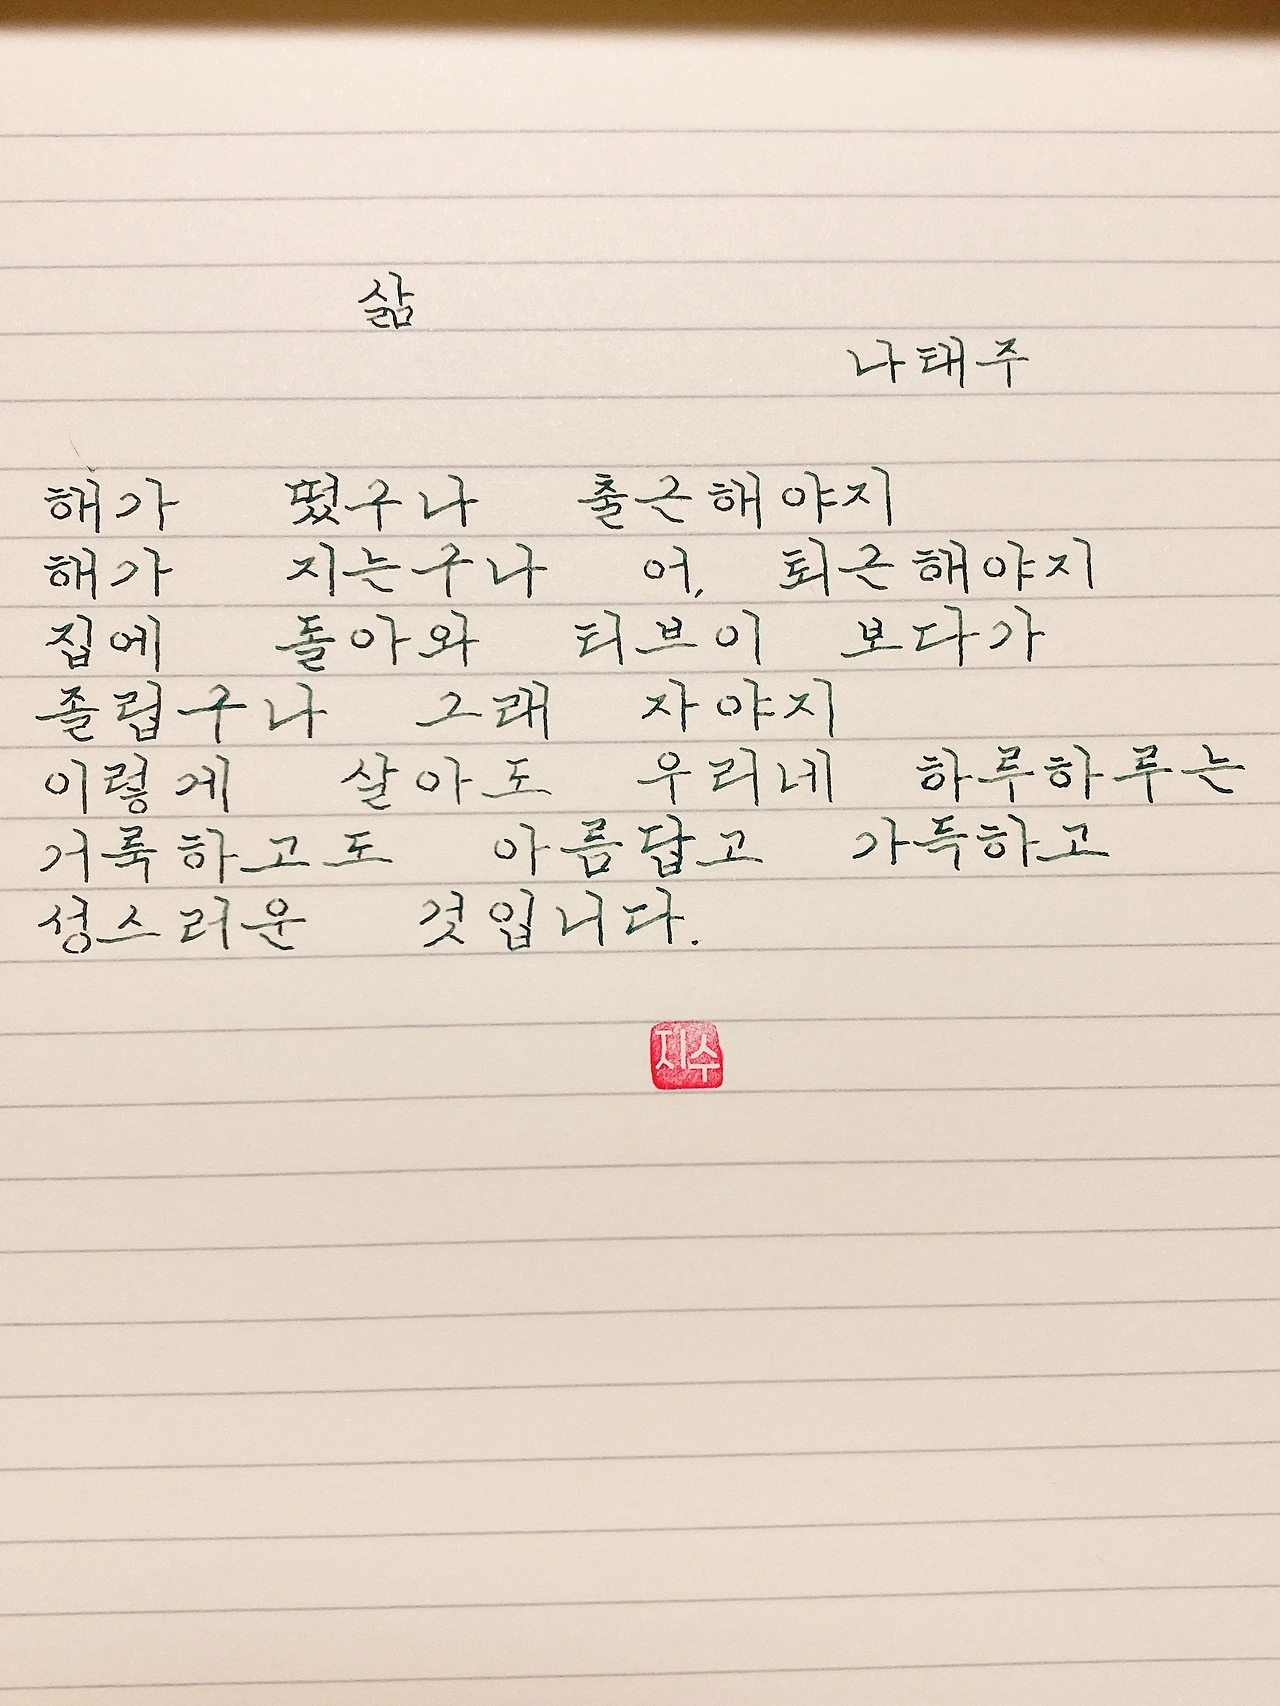 삶
나태주
해가 떴구나 출근해야지
해가 지는구나 어, 퇴근해야지
집에 돌아와 티브이 보다가
졸렵구나 그래 자야지
이렇게 살아도 우리네 하루하루는
거룩하고도 아름답고 가득하고
성스러운 것입니다.
지수